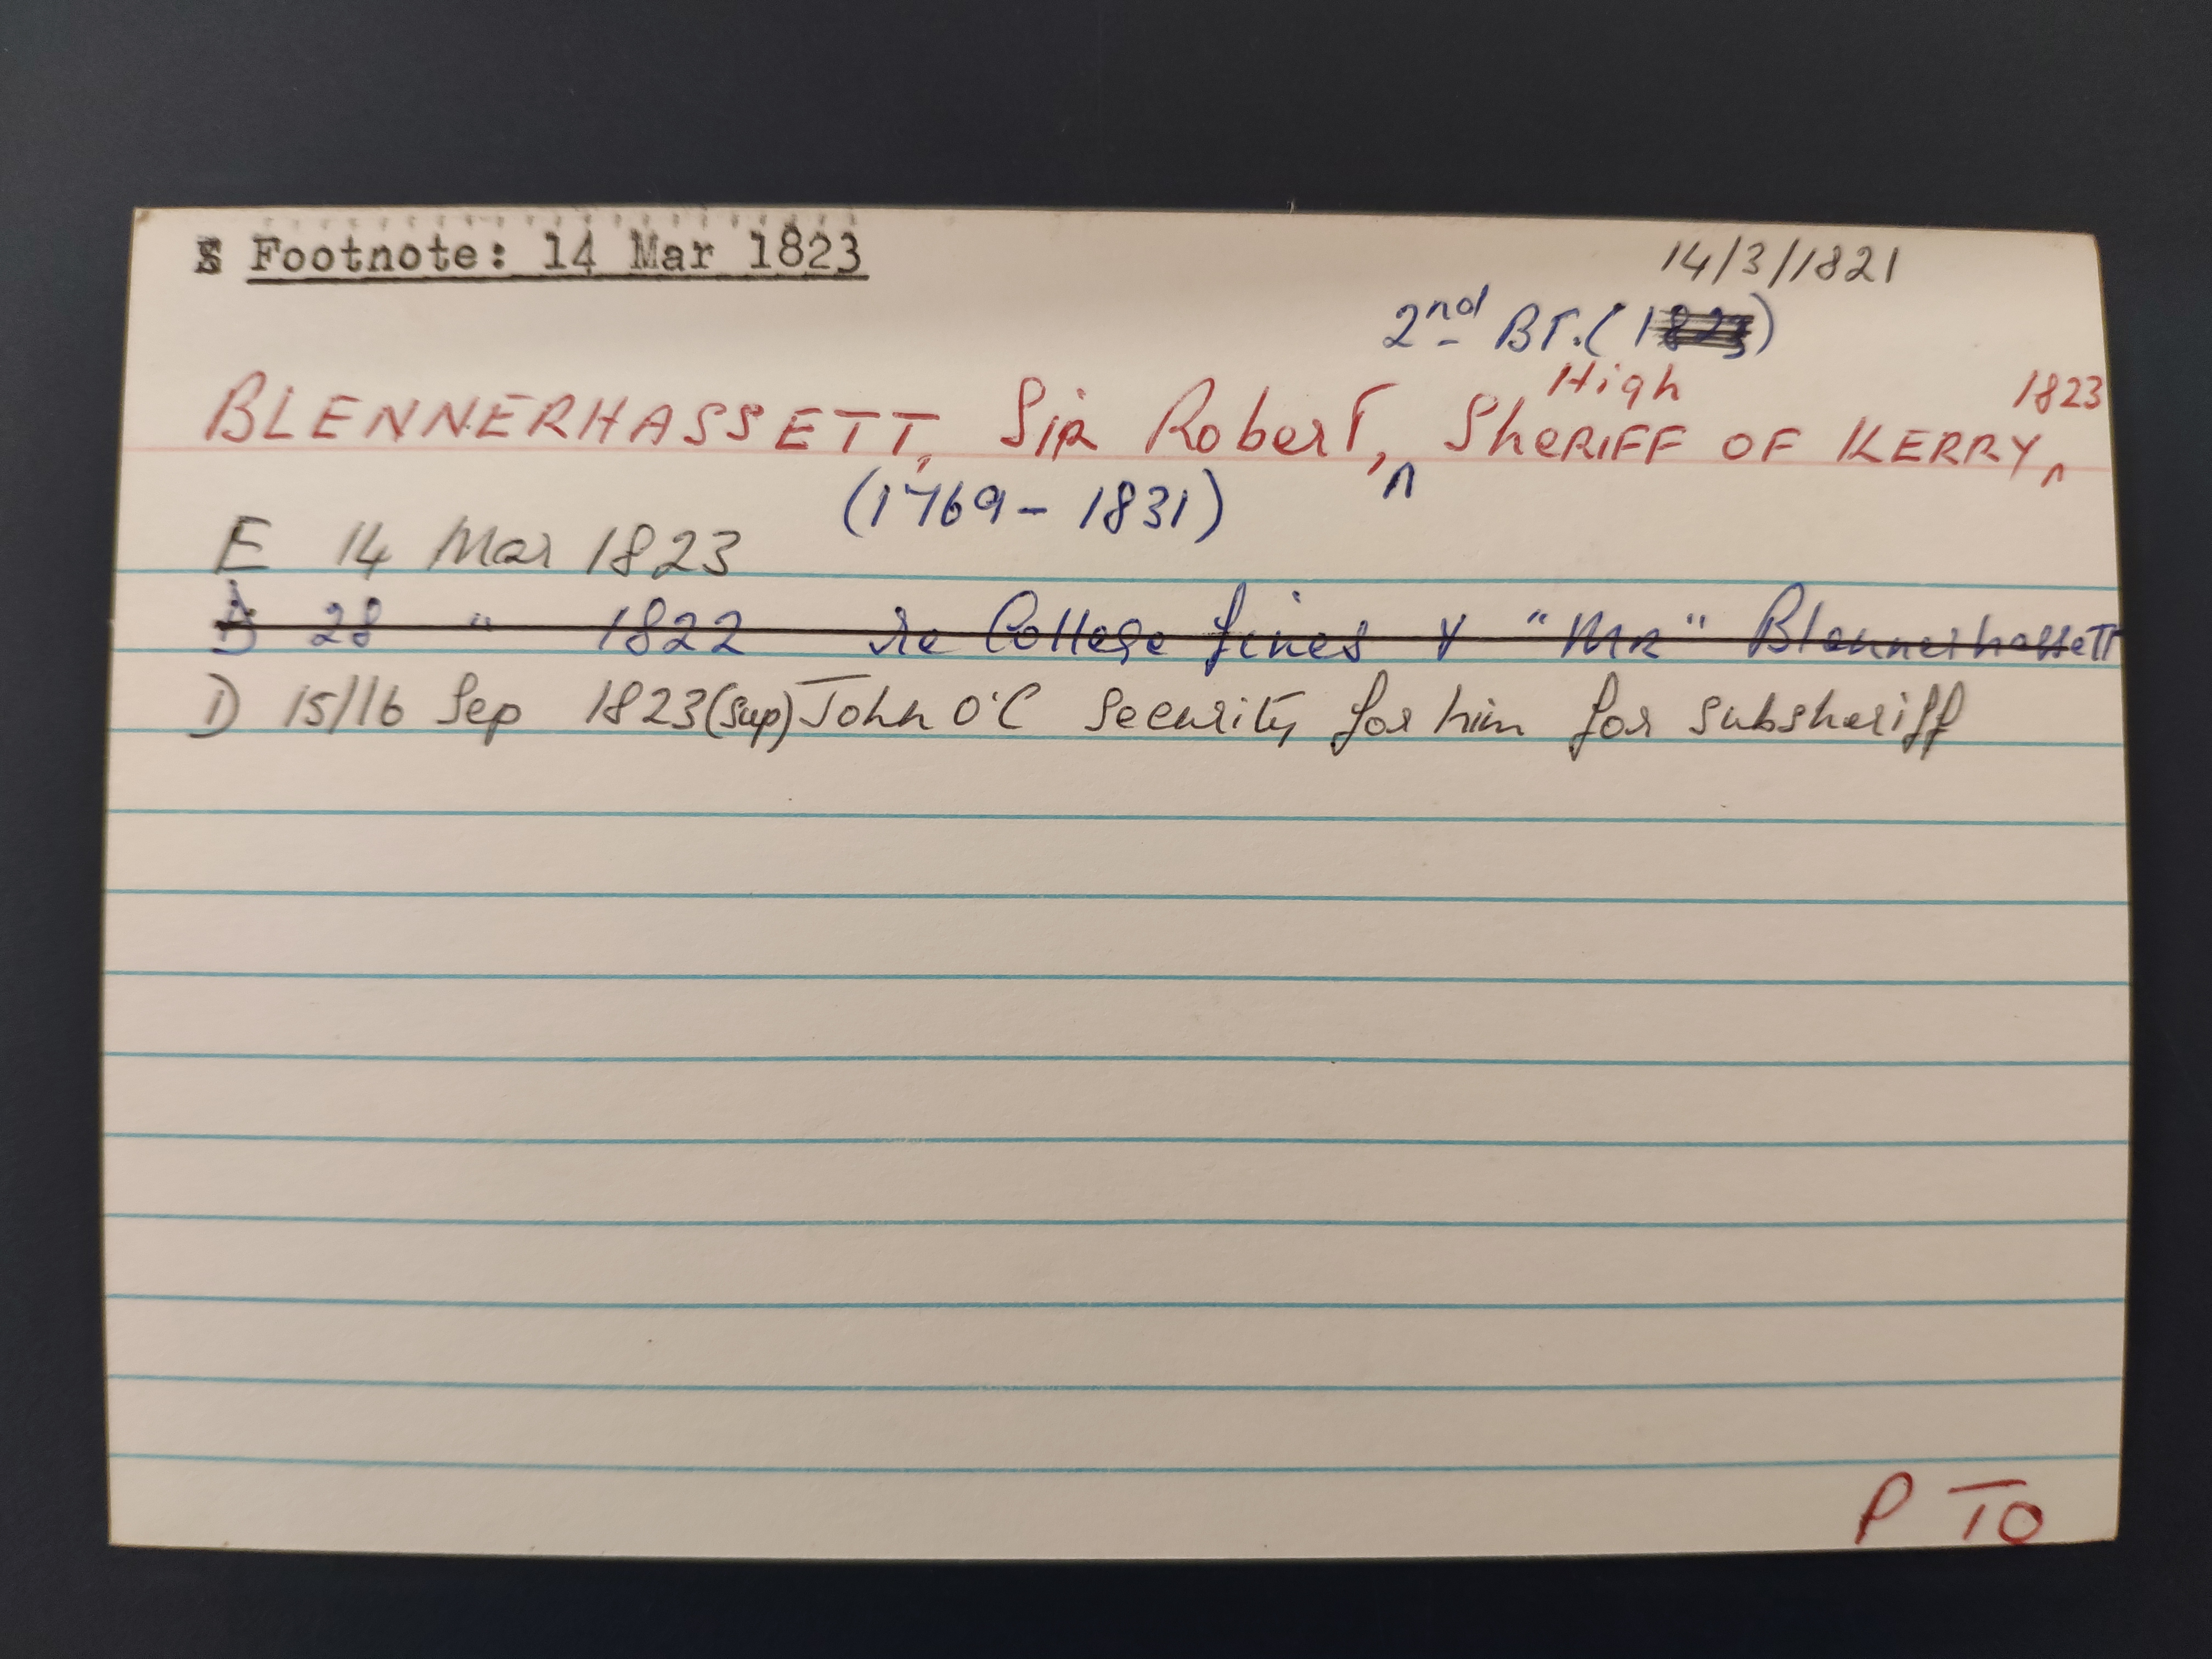 S Footnote: 14 Mar 1823
14/3/1821
2nd BT. (1823)
High 1823
BLENNERHASSETT, Sir Robert, ^ SHERIFF OF KERRY, ^
(1769 - 1831)
E 14 Mar 1823
28 " 1822 re College fines & "MR" Blennerhassett
D 15/16 Sep 1823 (sup) John O'C security for him for subsheriff
P TO